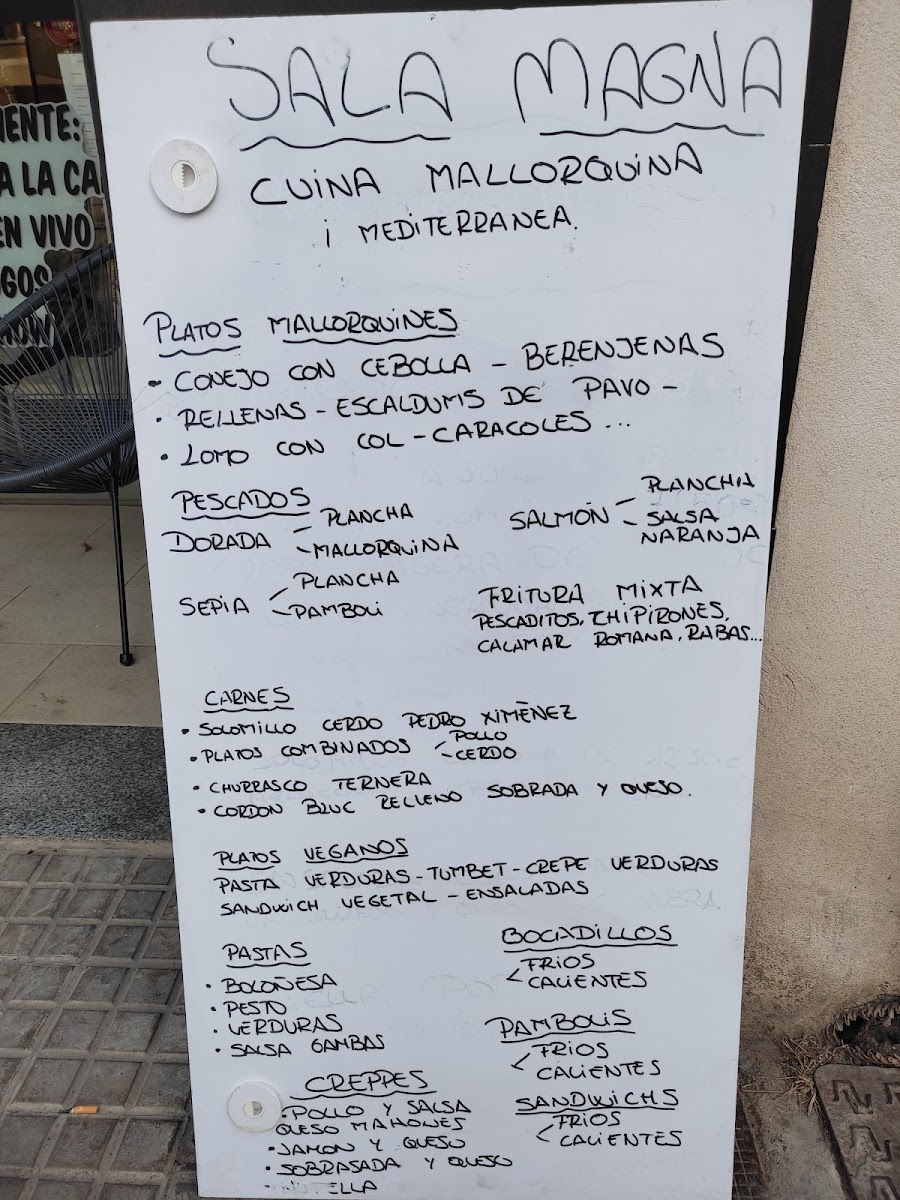 SALA MAGNA
CUINA MALLORQUINA
i MEDITERRANEA.
PLATOS MALLORQUINES
• CONEJO CON CEBOLLA - BERENJENAS
• RELLENAS - ESCALDUMS DE PAVO -
• LOMO CON COL - CARACOLES ...
PESCADOS
DORADA - PLANCHA
- MALLORQUINA
SALMÓN - PLANCHA
- SALSA
NARANJA
SEPIA - PLANCHA
- PAMBOLI
FRITURA MIXTA
PESCADITOS, CHIPIRONES,
CALAMAR ROMANA, RABAS...
CARNES
• SOLOMILLO CERDO PEDRO XIMÈNEZ
• PLATOS COMBINADOS - POLLO
- CERDO
• CHURRASCO TERNERA
• CORDON BLUC RELLENO SOBRADA Y QUESO.
PLATOS VEGANOS
PASTA VERDURAS - TUMBET - CREPE VERDURAS
SANDWICH VEGETAL - ENSALADAS
PASTAS
• BOLOÑESA
• PESTO
• VERDURAS
• SALSA GAMBAS
BOCADILLOS
- FRIOS
- CALIENTES
PAMBOLIS
- FRIOS
- CALIENTES
SANDWICHS
- FRIOS
- CALIENTES
CREPPES
• POLLO Y SALSA
QUESO MAHONES
• JAMON Y QUESO
• SOBRASADA Y QUESO
IENTE:
A LA CA
EN VIVO
GOS